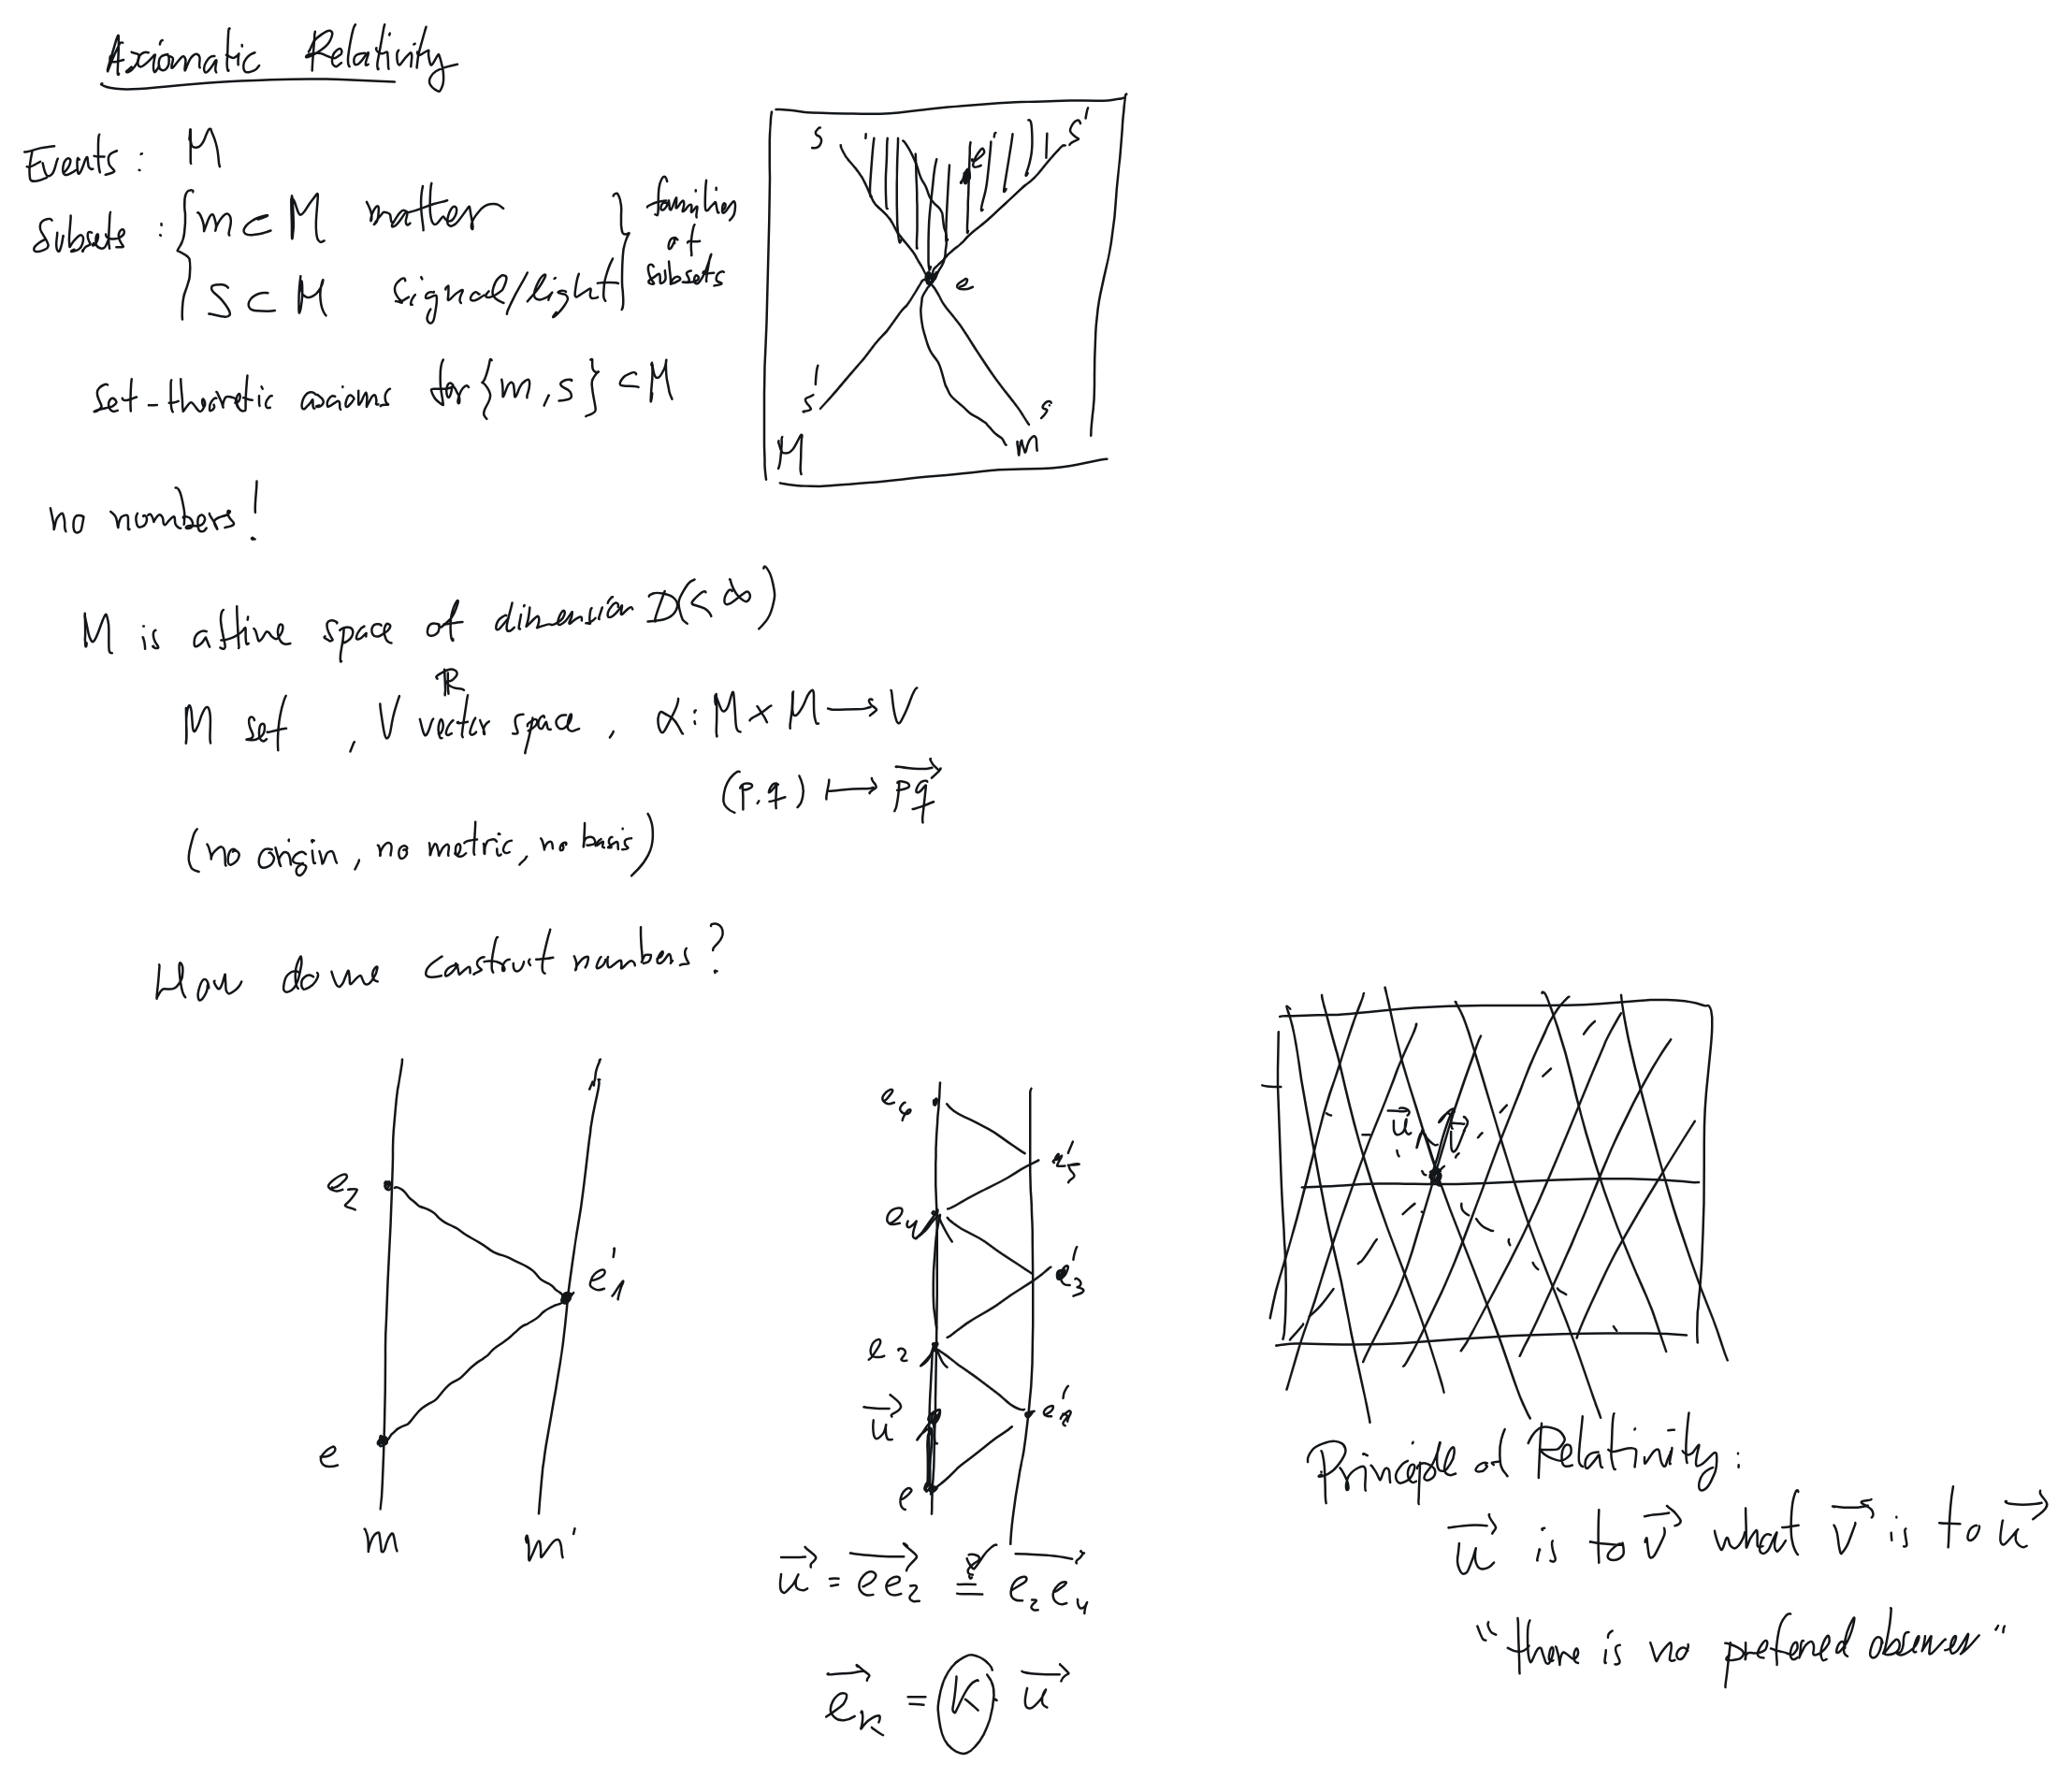 Axiomatic Relativity
Events : M
Subsets : { m ⊂ M matter
S ⊂ M signal/light } families of subsets
Set-theoretic axioms for {m, s} ⊂ M
no numbers!
M is affine space of dimension D(< ∞)
M set , V ℝ vector space , α : M × M → V
(p, q) ↦ \overrightarrow{pq}
(no origin, no metric, no basis)
How do we construct numbers?
s s'
e
e
s' s
M m
e₂
e'₁
e
m m'
e₆
e'₅
e₄
e'₃
e₂
e'₁
\vec{u}
e
\vec{u} = \overrightarrow{ee₂} ≟ \overrightarrow{e₂e₄}
\vec{e_k} = K · \vec{u}
\vec{u} \vec{v}
Principle of Relativity :
\vec{u} is to \vec{v} what \vec{v} is to \vec{u}
"there is no prefered observer"